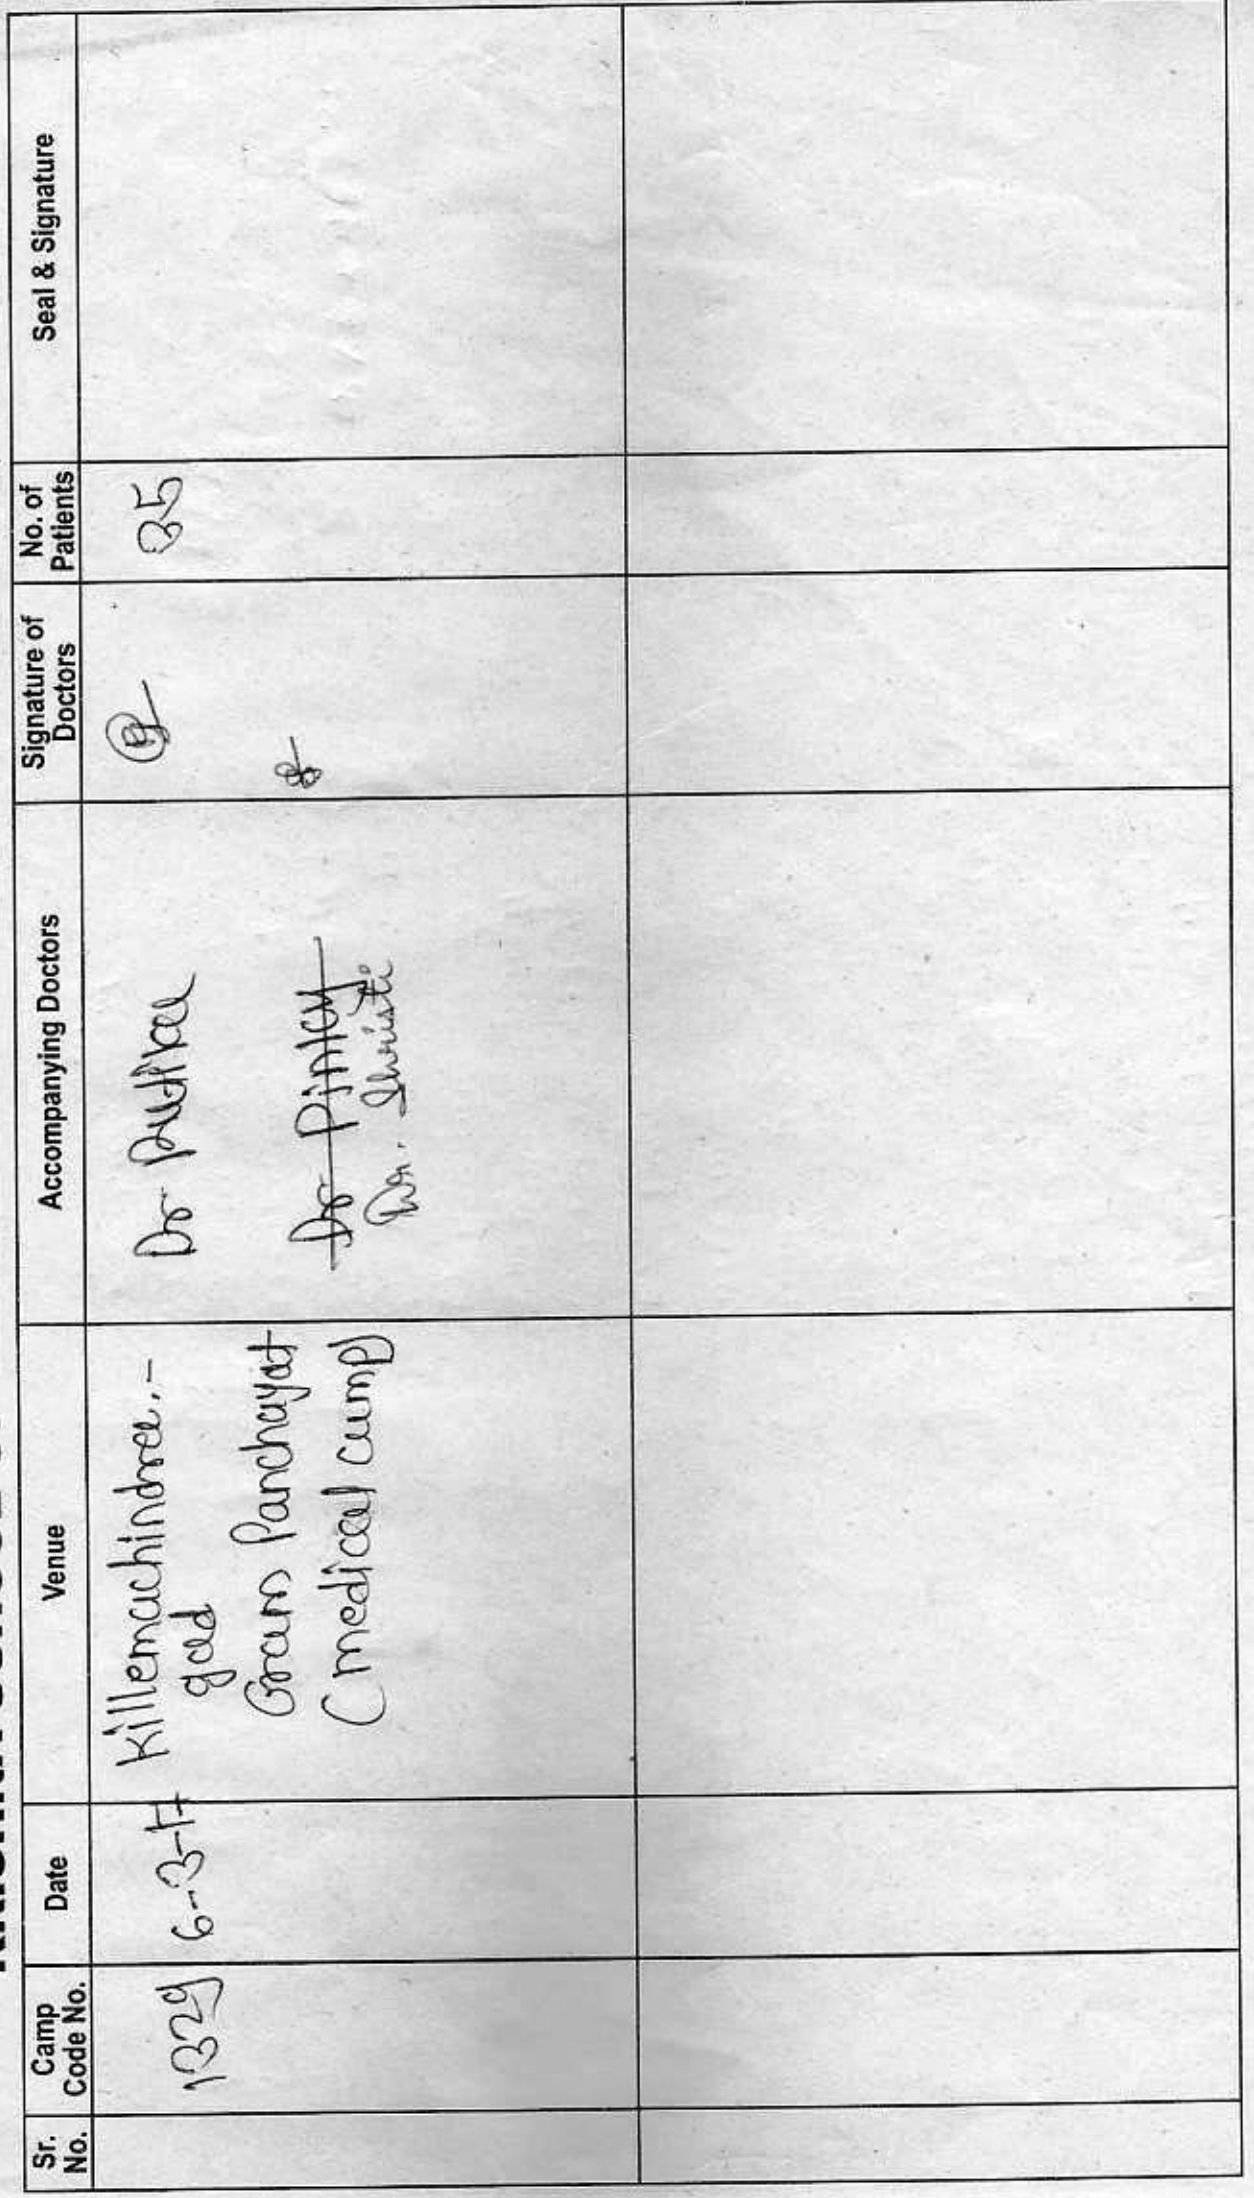 Sr. No.
Camp Code No.
Date
Venue
Accompanying Doctors
Signature of Doctors
No. of Patients
Seal & Signature
1329
6-3-17
Killemachindra.-
gad
Gram Panchayat
(medical camp)
Dr
Dr Pinky
Dr.
35